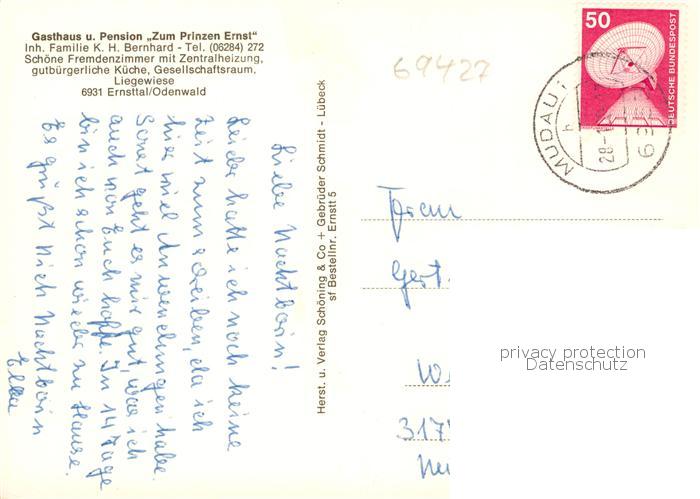 Gasthaus u. Pension „Zum Prinzen Ernst"
Inh. Familie K. H. Bernhard - Tel. (06284) 272
Schöne Fremdenzimmer mit Zentralheizung,
gutbürgerliche Küche, Gesellschaftsraum,
Liegewiese
6931 Ernsttal/Odenwald
Liebe Nachtbarin!
Leider hatte ich noch keine
Zeit zum schreiben, da ich
hier viel Anwendungen habe.
Sonst geht es mir gut, was ich
auch von Euch hoffe. In 14 Tage
bin ich schon wieder zu Hause.
Es grüßt Dich Nachtbarin
Ella
Herst. u. Verlag Schöning & Co + Gebrüder Schmidt - Lübeck
sf Bestellnr. Ernstt 5
69427
50
DEUTSCHE BUNDESPOST
MUDAU
Frau
Gert.
317
privacy protection
Datenschutz